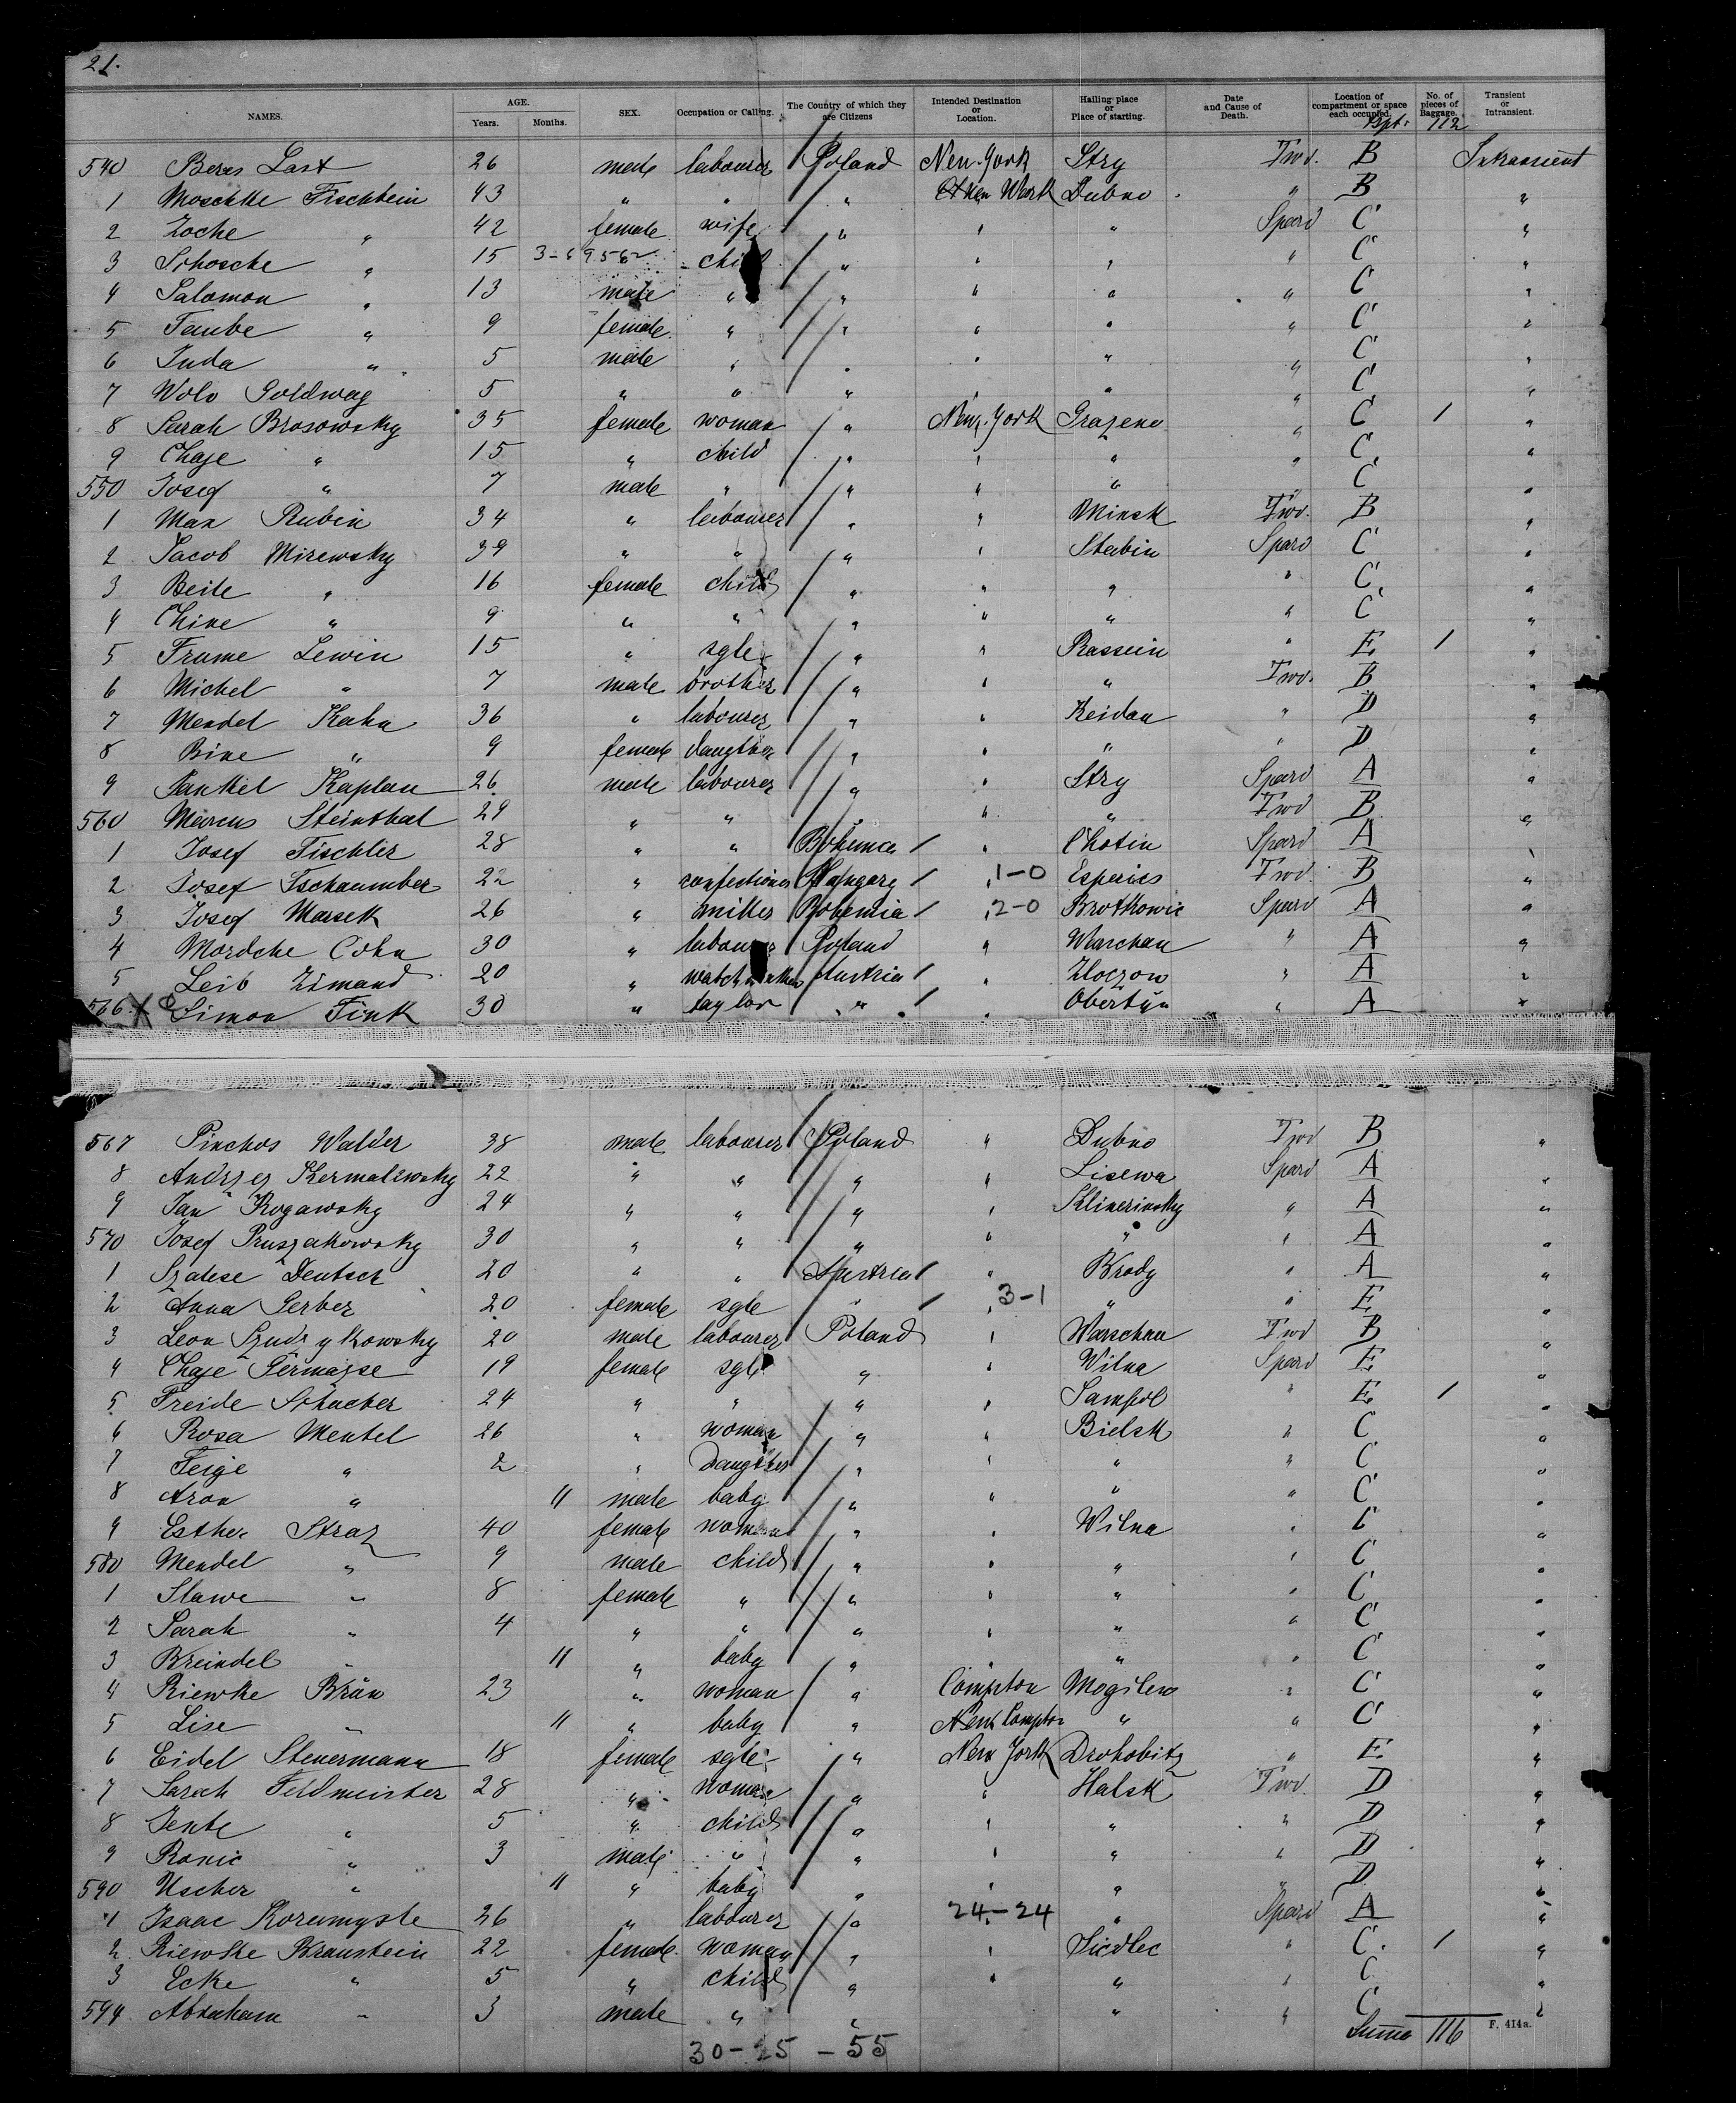 21.
NAMES. AGE. Years. Months. SEX. Occupation or Calling. The Country of which they are Citizens Intended Destination or Location. Hailing place or Place of starting. Date and Cause of Death. Location of compartment or space each occupied. No. of pieces of Baggage. Transient or Intransient.
112
540 Beras Last 26 male labourer Poland New-York Stry Twd. B Intransient
1 Moschke Fischbein 43 " " " New Wark Dubno " B "
2 Zoche " 42 female wife " " " Speard C "
3 Schosche " 15 " child " " " " C "
4 Salomon " 13 male " " " " " C "
5 Taube " 9 female " " " " " C "
6 Juda " 5 male " " " " " C "
7 Wolv Goldwag 5 " " " " " " C "
8 Sarah Brosowsky 35 female woman " New-York Grazeno " C 1 "
9 Chaje " 15 " child " " " " C "
550 Josef " 7 male " " " " " C "
1 Max Rubin 34 " labourer " " Minsk Twd. B "
2 Jacob Mirewsky 39 " " " " Stabin Speard C "
3 Beile " 16 female child " " " " C "
4 Chine " 9 " " " " " " C "
5 Frume Lewin 15 " sgle " " Rassein " E 1 "
6 Michel " 7 male brother " " " Twd. B "
7 Mendel Kahn 36 " labourer " " Keidan " D "
8 Bine " 9 female daugther " " " " D "
9 Jankel Kaplan 26 male labourer " " Stry Speard A "
560 Marcus Steinthal 29 " " " " Twd B "
1 Josef Fischler 28 " " Bohemia " Chotin Speard A "
2 Josef Tschaumber 22 " confectioner Hungary " 1-0 Esperies Twd B "
3 Josef Marsek 26 " miller Bohemia " 2-0 Brotkowic Speard A "
4 Mordche Cohn 30 " labourer Poland " Warschau " A "
5 Leib Zimand 20 " watchmaker Austria " Zloczow " A "
566 X Simon Fink 30 " taylor " " Obertyn " A "
567 Pinchos Walder 38 male labourer Poland " Dubno Twd B "
8 Andrzej Skermalewsky 22 " " " " Lisewa Speard A "
9 Jan Rogawsky 24 " " " " Sklinerinsky " A "
570 Josef Pruszakowsky 30 " " " " " " A "
1 Szalese Deutsch 20 " " Austria " Brody " A "
2 Anna Gerber 20 female sgle " " 3-1 " " E "
3 Leon Szudrykowsky 20 male labourer Poland " Warschau Twd B "
4 Chaje Germajse 19 female sgle " " Wilna Speard E "
5 Freide Schacher 24 " " " " Sampol " E 1 "
6 Rosa Mentel 26 " woman " " Bielsk " C "
7 Feige " 2 " Daughter " " " " C "
8 Aron " 11 male baby " " " " C "
9 Esther Straz 40 female woman " " Wilna " C "
580 Mendel " 9 male child " " " " C "
1 Slawe " 8 female " " " " " C "
2 Sarah " 4 " " " " " " C "
3 Breindel " 11 " baby " " " " C "
4 Riewke Brün 23 " woman " Compton Mogilew " C "
5 Lise " 11 " baby " New Compton " " C "
6 Eidel Steuermann 18 female sgle " New York Drohobitz " E "
7 Sarah Feldmeister 28 " woman " " Halsk Twd. D "
8 Jente " 5 " child " " " " D "
9 Ronic " 3 male " " " " " D "
590 Uscher " 11 " baby " " " " D "
1 Isaac Koremyste 26 " labourer " 24-24 " Speard A "
2 Riewke Braunstein 22 female woman " " Siedlec " C 1 "
3 Ecke " 5 " child " " " " C "
594 Abraham " 3 male " " " " C "
Suma 116 F. 414a.
30-25-55